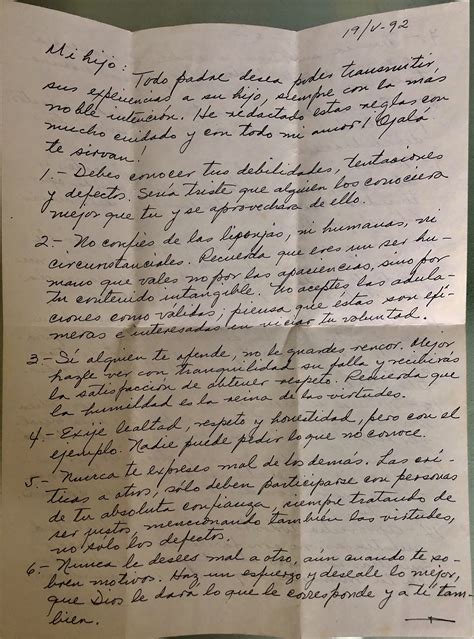 19/V-92
Mi hijo: Todo padre desea poder transmitir
sus experiencias a su hijo, siempre con la más
noble intención. He redactado estas reglas con
mucho cuidado y con todo mi amor! Ojalá
te sirvan!
1.- Debes conocer tus debilidades, tentasiones
y defectos. Sería triste que alguien los conociera
mejor que tu y se aprovechara de ello.
2.- No confies de las lisonjas, ni humanas, ni
circunstanciales. Recuerda que eres un ser hu-
mano que vales no por las apariencias, sino por
tu contenido intangible. No aceptes las adula-
ciones como validas; piensa que estas son efí-
meras e interesadas en viciar tu voluntad.
3.- Si alguien te ofende, no le guardes rencor. Mejor
hazle ver con tranquilidad su falla y recibirás
la satisfacción de obtener respeto. Recuerda que
la humildad es la reina de las virtudes.
4.- Exije lealtad, respeto y honestidad, pero con el
ejemplo. Nadie puede pedir lo que no conoce.
5.- Nunca te expreses mal de los demás. Las crí-
ticas a otros, sólo deben participarse con personas
de tu absoluta confianza, siempre tratando de
ser justos, mencionando también las virtudes,
no solo los defectos.
6.- Nunca le desees mal a otro, aún cuando te so-
bren motivos. Haz un esfuerzo y deséale lo mejor,
que Dios le dará lo que le corresponde y a tí tam-
bién.